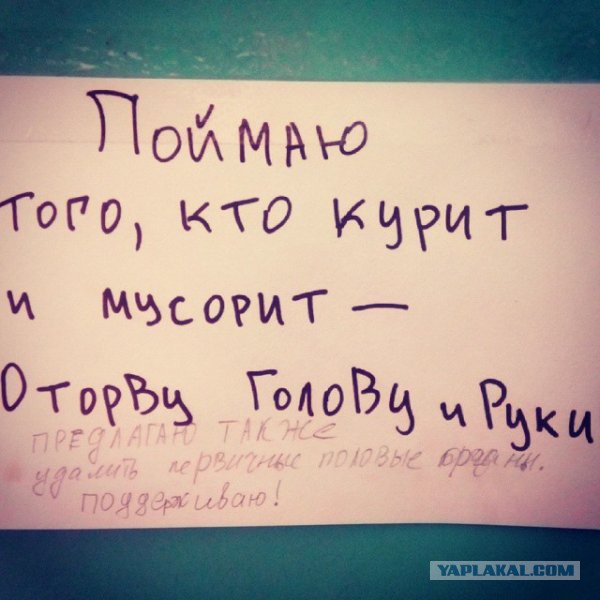 Поймаю
того, кто курит
и мусорит —
Оторву Голову и Руки
ПРЕДЛАГАЮ ТАКЖЕ
удалить первичные половые органы.
поддерживаю!
YAPLAKAL.COM